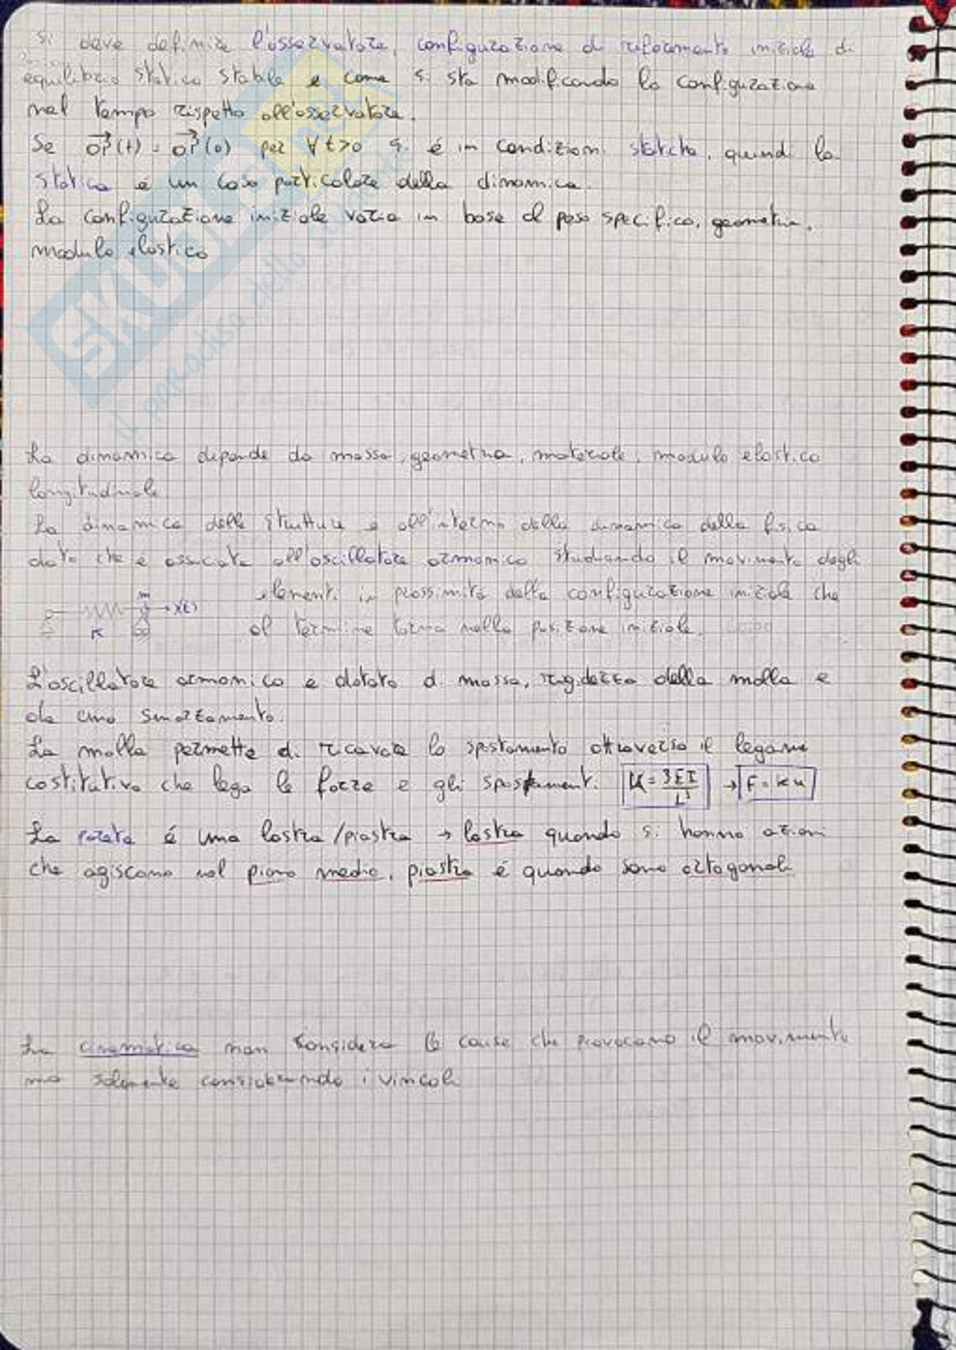 Si deve definire l'osservatore, configurazione di riferimento iniziale di
equilibrio statico stabile e come si sta modificando la configurazione
nel tempo rispetto all'osservatore.
Se OP(t) = OP(0) per ∀t>0 si é in condizioni statiche, quindi la
statica é un caso particolare della dinamica.
La configurazione iniziale varia in base al peso specifico, geometria,
modulo elastico
SKUOLA
il paradiso dello
La dinamica dipende da massa, geometria, materiale, modulo elastico
longitudinale.
La dinamica delle strutture é all'interno della dinamica della fisica
dato che é associata all'oscillatore armonico studiando il movimento degli
m
x(t)
K
elementi in prossimità della configurazione iniziale che
al termine torna nella posizione iniziale.
L'oscillatore armonico é dotato di massa, rigidezza della molla e
da uno smorzamento.
La molla permette di ricavare lo spostamento attraverso il legame
costitutivo che lega le forze e gli spostamenti. K = 3EI/L³ → F = Ku
La parete é una lastra/piastra → lastra quando si hanno azioni
che agiscono nel piano medio, piastra é quando sono ortogonali
La cinematica non considera le cause che provocano il movimento
ma solamente considerando i vincoli